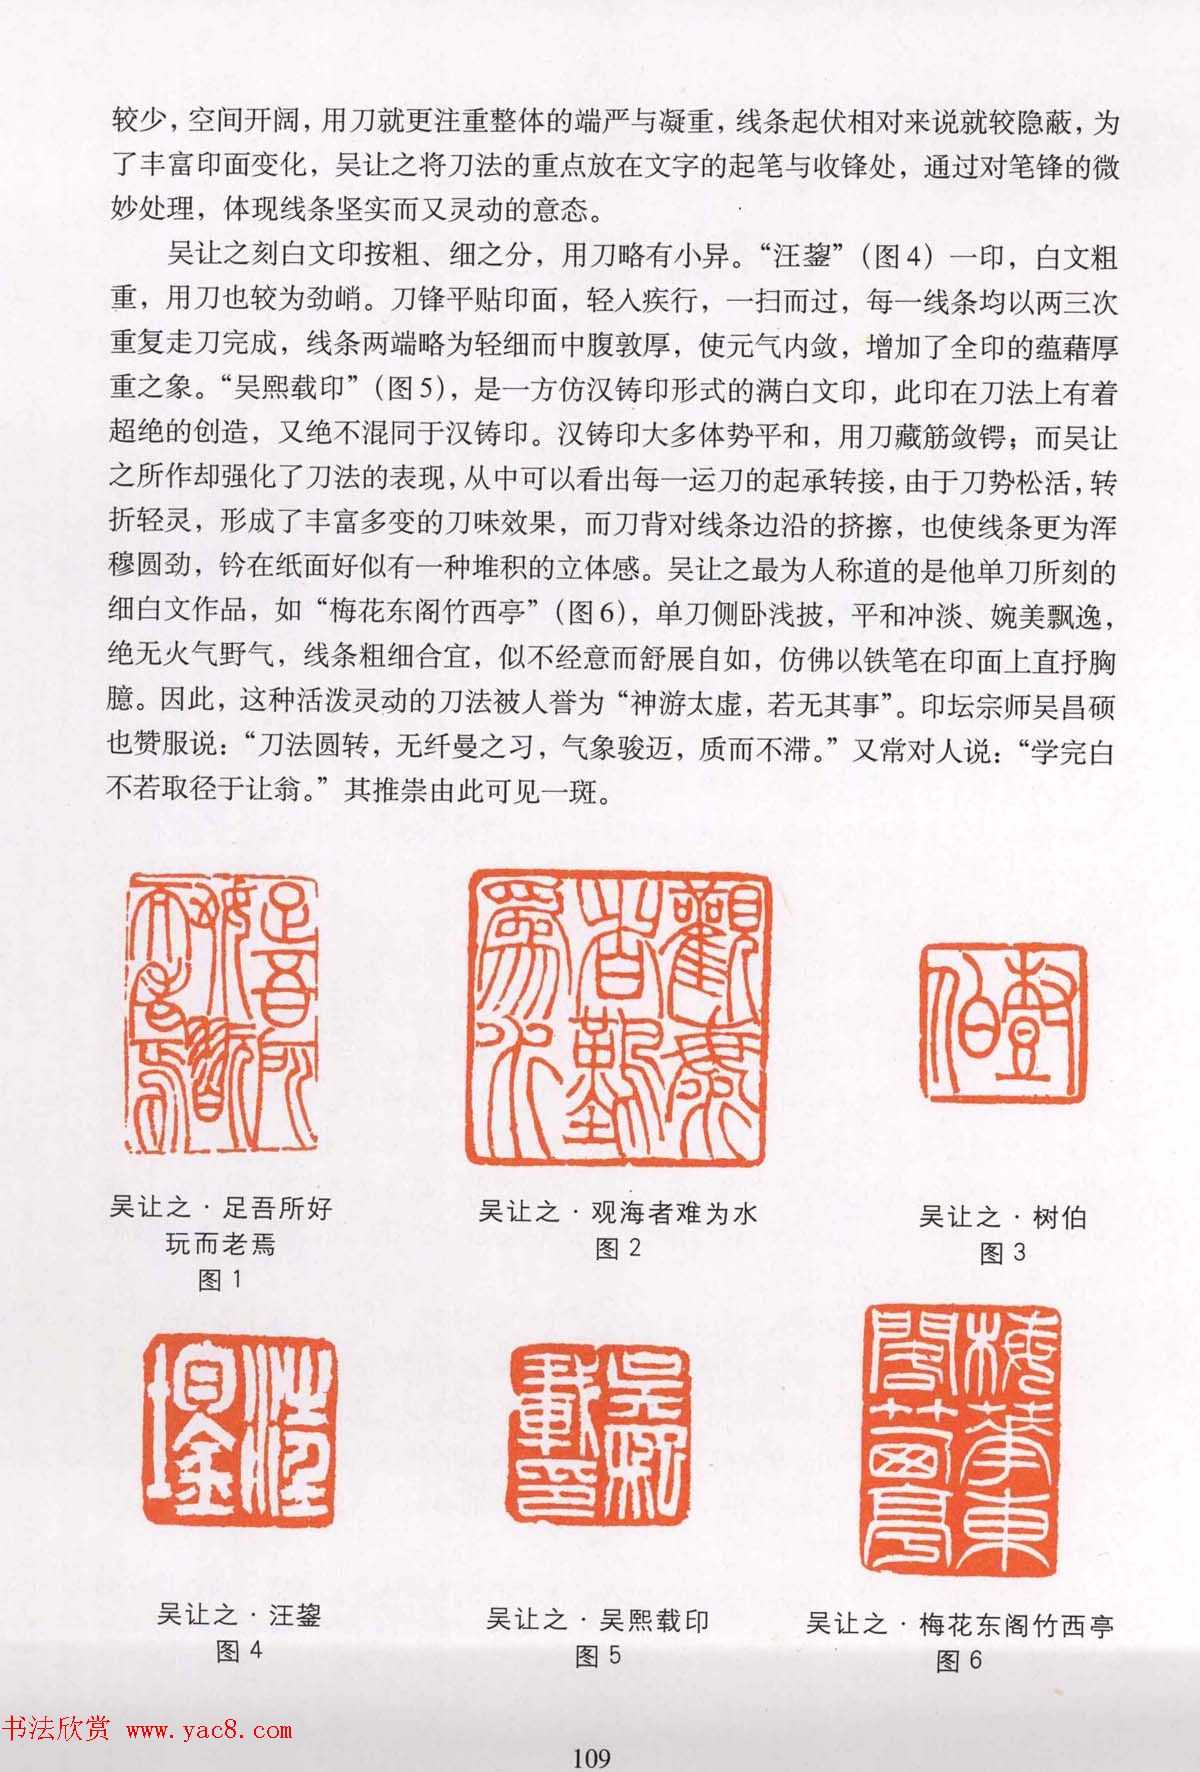 较少，空间开阔，用刀就更注重整体的端严与凝重，线条起伏相对来说就较隐蔽，为
了丰富印面变化，吴让之将刀法的重点放在文字的起笔与收锋处，通过对笔锋的微
妙处理，体现线条坚实而又灵动的意态。
吴让之刻白文印按粗、细之分，用刀略有小异。“汪鋆”（图4）一印，白文粗
重，用刀也较为劲峭。刀锋平贴印面，轻入疾行，一扫而过，每一线条均以两三次
重复走刀完成，线条两端略为轻细而中腹敦厚，使元气内敛，增加了全印的蕴藉厚
重之象。“吴熙载印”（图5），是一方仿汉铸印形式的满白文印，此印在刀法上有着
超绝的创造，又绝不混同于汉铸印。汉铸印大多体势平和，用刀藏筋敛锷；而吴让
之所作却强化了刀法的表现，从中可以看出每一运刀的起承转接，由于刀势松活，转
折轻灵，形成了丰富多变的刀味效果，而刀背对线条边沿的挤擦，也使线条更为浑
穆圆劲，钤在纸面好似有一种堆积的立体感。吴让之最为人称道的是他单刀所刻的
细白文作品，如“梅花东阁竹西亭”（图6），单刀侧卧浅披，平和冲淡、婉美飘逸，
绝无火气野气，线条粗细合宜，似不经意而舒展自如，仿佛以铁笔在印面上直抒胸
臆。因此，这种活泼灵动的刀法被人誉为“神游太虚，若无其事”。印坛宗师吴昌硕
也赞服说：“刀法圆转，无纤曼之习，气象骏迈，质而不滞。”又常对人说：“学完白
不若取径于让翁。”其推崇由此可见一斑。
吴让之·足吾所好
玩而老焉
图1
吴让之·观海者难为水
图2
吴让之·树伯
图3
吴让之·汪鋆
图4
吴让之·吴熙载印
图5
吴让之·梅花东阁竹西亭
图6
书法欣赏 www.yac8.com
109